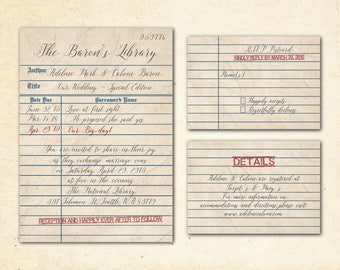 The Baron's Library
Author Adeline Mark & Calvin Baron
Title Our Wedding Special Edition
Date Due Borrowers Name
Love at first sight
He proposed she said yes
Our Big day!
You are invited to share in their joy
as they exchange marriage vows
on Saturday April 29, 2018
at five in the evening
The National Library
Solomon St. Seattle, WA
RECEPTION AND HAPPILY EVER AFTER TO FOLLOW
R.S.V.P Postcard
KINDLY REPLY BY MARCH 20, 2018
Name(s)
Happily accepts
Regretfully declines
DETAILS
Adeline & Calvin are registered at
Target & Macy's
For more information on
accommodations and directions please visit